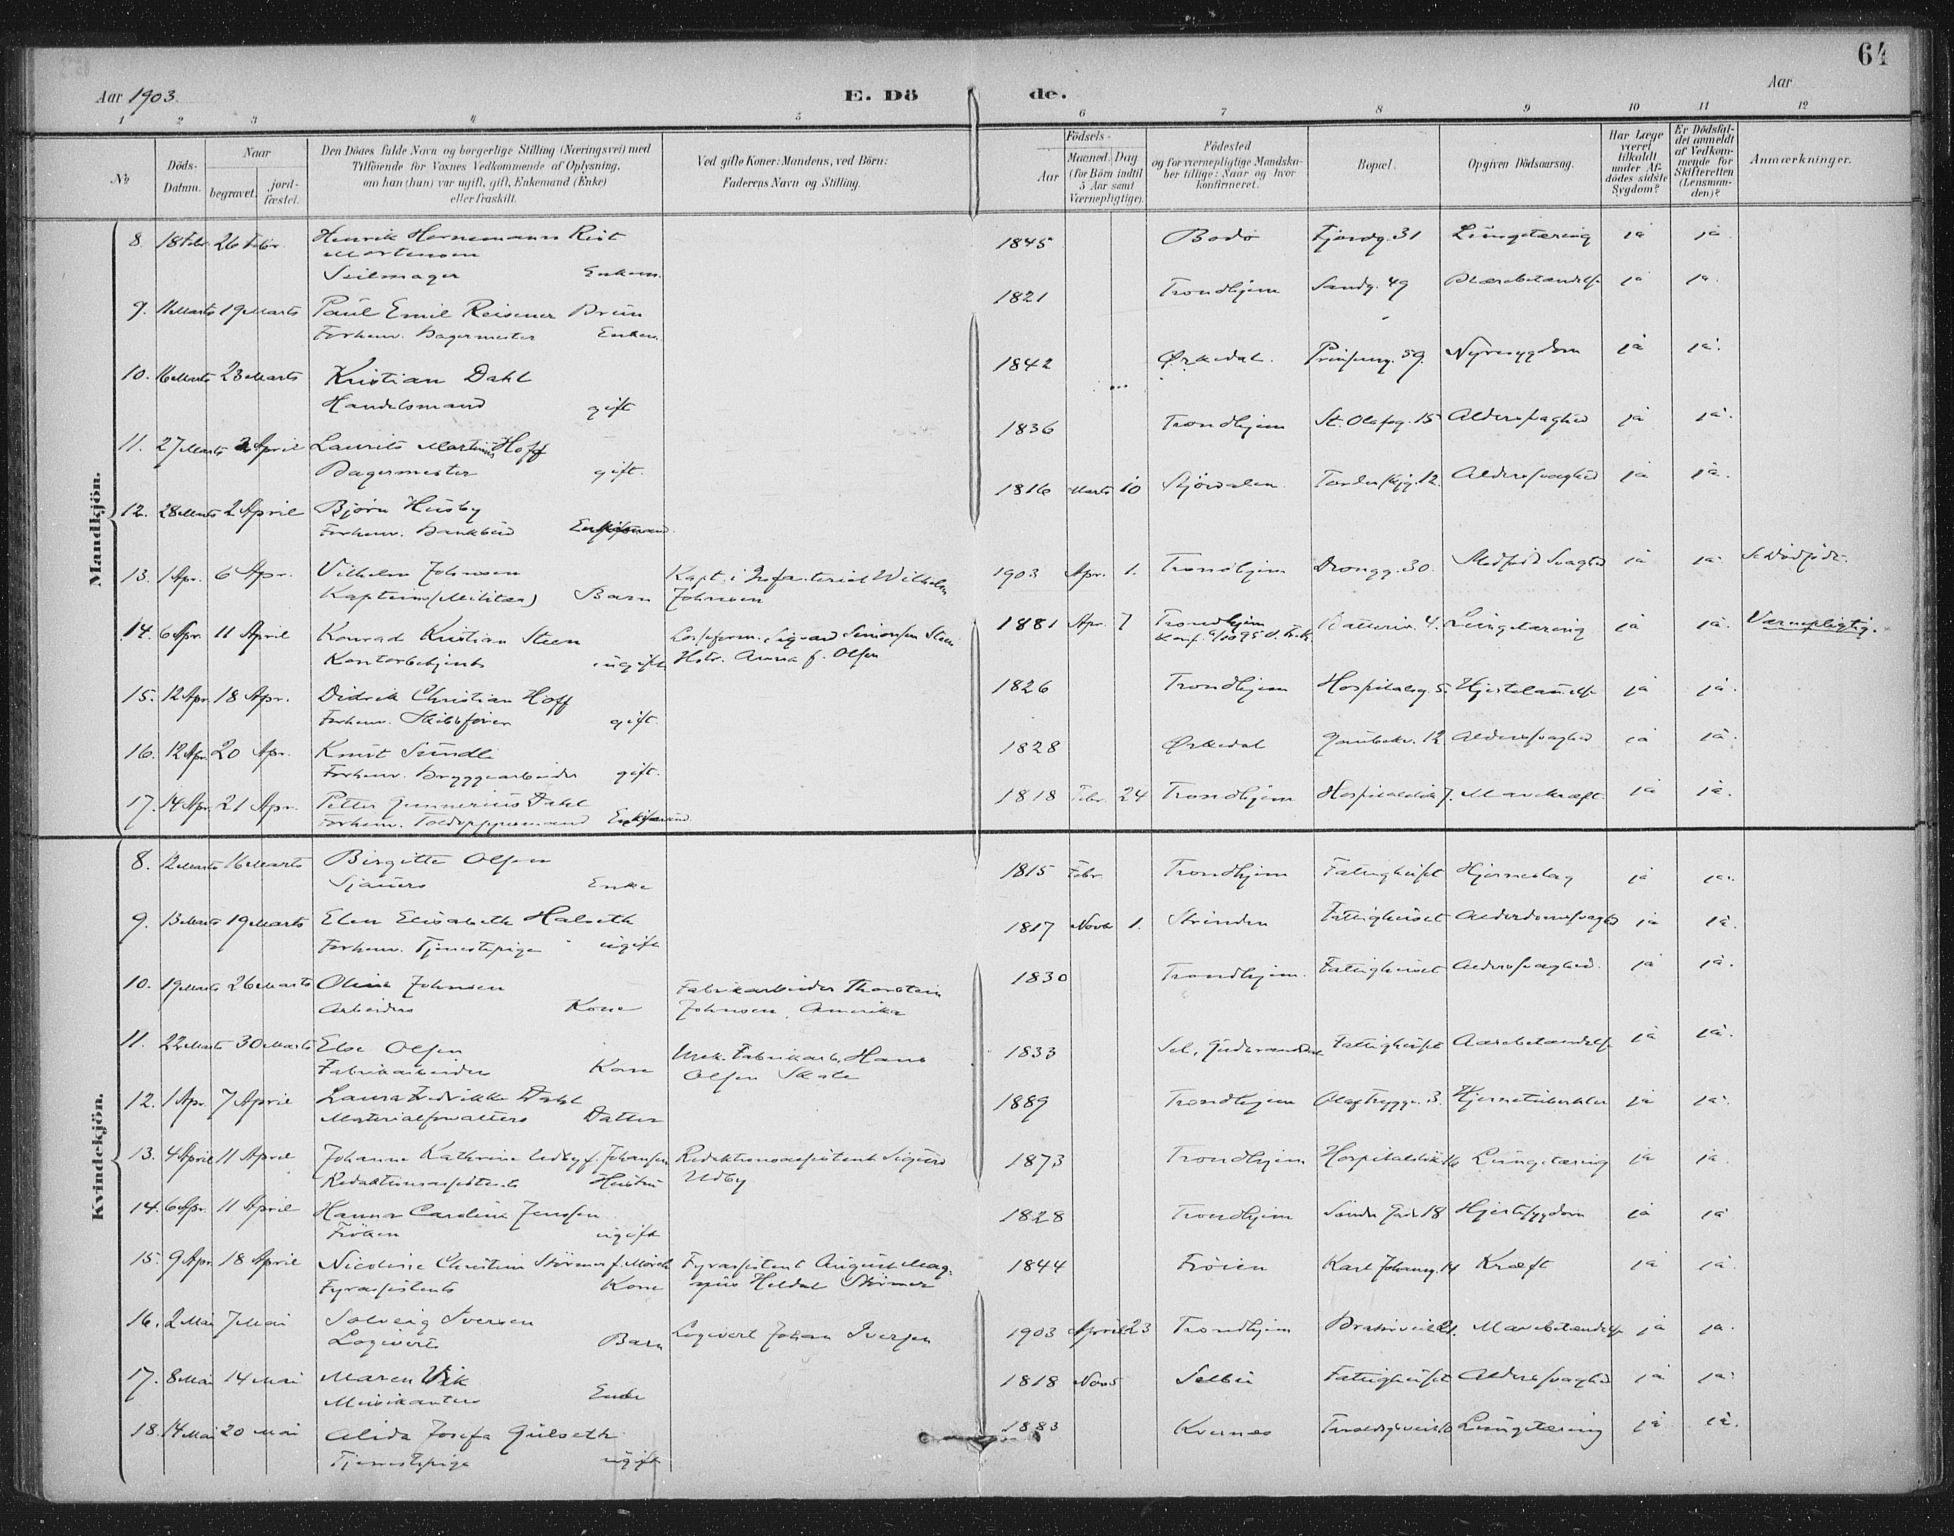 64
Aar 1903. E. Dö de. Aar
1 2 3 4 5 6 7 8 9 10 11 12
No
Döds-Datum.
Naar
begravet.
jordfæstet.
Den Dödes fulde Navn og borgerlige Stilling (Næringsvei) med
Tilföiende for Voxnes Vedkommende af Oplysning,
om han (hun) var ugift, gift, Enkemand (Enke)
eller fraskilt.
Ved gifte Koner: Mandens, ved Börn:
Faderens Navn og Stilling.
Födsels-
Aar
Maaned. Dag
(for Börn indtil
5 Aar samt
Værnepligtige).
Födested
og for værnepligtige Mandskaber tillige: Naar og hvor
konfirmeret.
Bopæl.
Opgiven Dödsaarsag.
Har Læge
været
tilkaldt
under Afdödes sidste
Sygdom?
Er Dödsfaldet anmeldt
af Vedkommende for
Skifteretten
(Lensmanden)?
Anmærkninger.
Mandkjön.
8. 18 Febr. 26 Febr. Henrik Hornemann Rist 1845 Bodö Fjordg. 31 Lungetæring ja ja.
Mortensen
Seilmager Enkem.
9. 11 Marts 19 Marts Paul Emil Reisener Brun 1821 Trondhjem Sandg. 49 Blærebetændelse ja ja.
Forhenv. Bagermester Enkem.
10. 16 Marts 23 Marts Kristian Dahl 1842 Ørkedal. Prinseng. 59. Nyresygdom ja ja.
Handelsmand gift
11. 27 Marts 2 April Laurits Martinus Hoff 1836 Trondhjem St. Olafsg. 15 Alderssvaghed ja ja.
Bagermester gift.
12. 28 Marts 2 April Bjørn Husby 1816 Marts 10 Stjørdalen 12. Alderssvaghed ja ja.
Forhenv. Bankbud Enkemand
13. 1 Apr. 6 Apr. Vilhelm Johnsen Kapt. i Infanteriet Wilhelm 1903 Apr. 1. Trondhjem 30. Medfød Svaghed ja ja.
Kaptein (Militær) Barn Johnsen
14. 6 Apr. 11 April Konrad Kristian Steen Sigvard Simonsen Steen 1881 Apr. 7 Trondhjem 4. Lungetæring ja ja. Værnepligtig.
Kontorbetjent ugift Hstr. Anna f. Olsen
15. 12 Apr. 18 Apr. Didrik Christian Hoff 1826 Trondhjem Hospitalsg. 5. ja ja.
Forhenv. Skibsfører gift.
16. 12 Apr. 20 Apr. Knut Sundli 1828 Ørkedal 12 Alderssvaghed ja ja.
Forhenv. Bryggearbeider gift.
17. 14 Apr. 21 Apr. Petter Gunnerius Dahl 1818 Febr. 24 Trondhjem 7. Mavekræft. ja ja.
Forhenv. Toldoppsynsmand Enkemand
Kvindekjön.
8. 12 Marts 16 Marts Birgitte Olsen 1815 Febr Trondhjem Fattighuset Hjerneslag ja ja.
Sjauers Enke
9. 13 Marts 19 Marts Elen Elisabeth Halseth 1817 Novbr 1. Strinden Fattighuset ja ja.
Forhenv. Tjenestepige ugift
10. 19 Marts 26 Marts Oline Johnsen Fabrikarbeider Thorstein 1830 Trondhjem. Fattighuset Alderssvaghed. ja ja.
Arbeiders Kone Johnsen, Amerika
11. 22 Marts 30 Marts Else Olsen Fabrikarb. Hans 1833 Sel, Gudbrandsdal Fattighuset Aarebetændelse ja ja.
Fabrikarbeiders Kone Olsen
12. 1 Apr. 7 April Laura Fredrikke Dahl 1889 Trondhjem 3. Hjernetuberkler ja ja.
Materialforvalters Datter
13. 4 April 11 April Johanne Kathrine Udby f. Johansen Redaktionsassistent Sigurd 1873 Trondhjem 16 Lungetæring ja ja.
Redaktionsassistents Hustru Udby
14. 6 Apr. 11 April Hanna Caroline Jenssen 1828 Trondhjem 18 Hjertesygdom ja ja
Frøken ugift
15. 9 Apr. 18 April Nicoline Christine Størmer f. Mørch Fyrassistent August Mag- 1844 Frøien Karl Johansg. 14 Kræft ja ja.
Fyrassistents Kone nus Heldal Størmer
16. 2 Mai 7 Mai Solveig Iversen Logivert Johan Iversen 1903 April 23 Trondhjem 21. Mavebetændelse ja ja.
Logiverts Barn
17. 8 Mai 14 Mai Maren Vik 1818 Novb Selbu Fattighuset Alderssvaghed ja ja.
Musikanters Enke
18. 14 Mai 20 Mai Alida Josefa Gulseth 1883 Kvernes Lungetæring ja ja.
Tjenestepige ugift